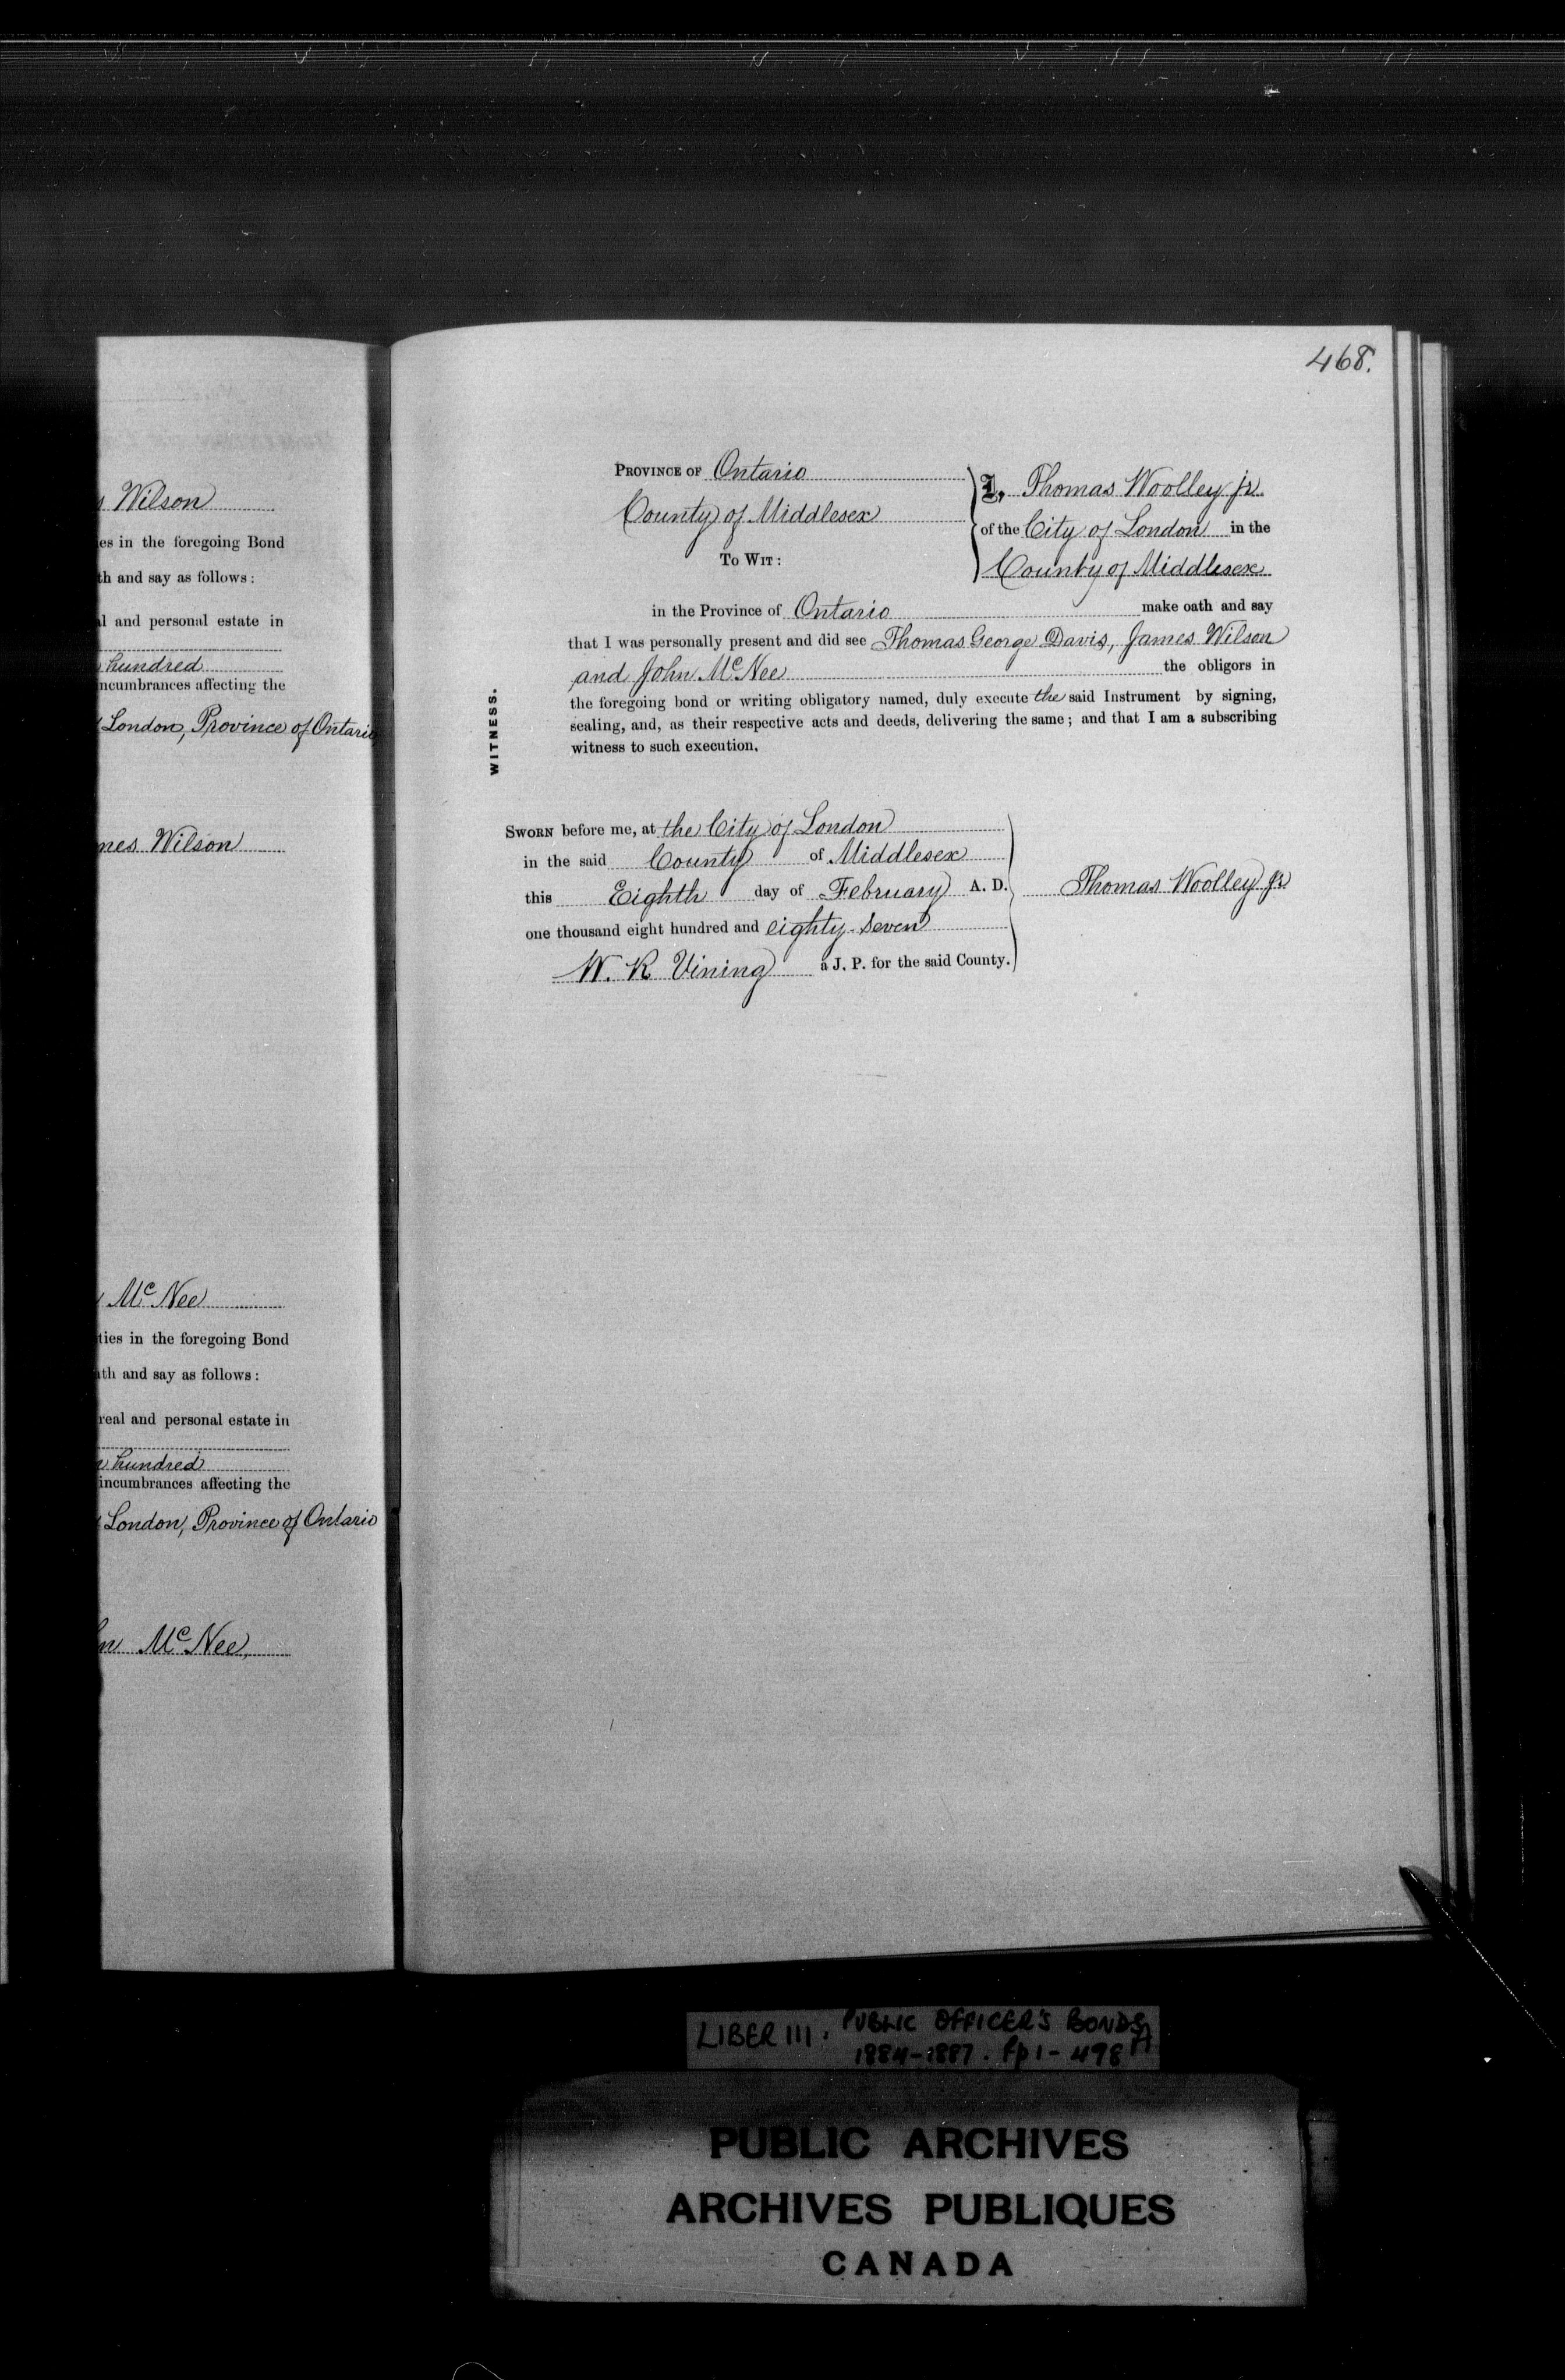 s Wilson
es in the foregoing Bond
th and say as follows:
l and personal estate in
hundred
ncumbrances affecting the
London, Province of Ontario
mes Wilson
McNee
ties in the foregoing Bond
ath and say as follows:
real and personal estate in
n hundred
incumbrances affecting the
London, Province of Ontario
hn McNee,
468.
PROVINCE OF Ontario
County of Middlesex
TO WIT:
I, Thomas Woolley jr
of the City of London in the
County of Middlesex
in the Province of Ontario make oath and say
that I was personally present and did see Thomas George Davis, James Wilson
and John McNee the obligors in
the foregoing bond or writing obligatory named, duly execute the said Instrument by signing,
sealing, and, as their respective acts and deeds, delivering the same; and that I am a subscribing
witness to such execution.
WITNESS.
SWORN before me, at the City of London
in the said County of Middlesex
this Eighth day of February A. D.
one thousand eight hundred and eighty-seven
W. R Vining a J. P. for the said County.
Thomas Woolley Jr
LIBER III. PUBLIC OFFICER'S BONDS
1884-1887. fp 1-498A
PUBLIC ARCHIVES
ARCHIVES PUBLIQUES
CANADA